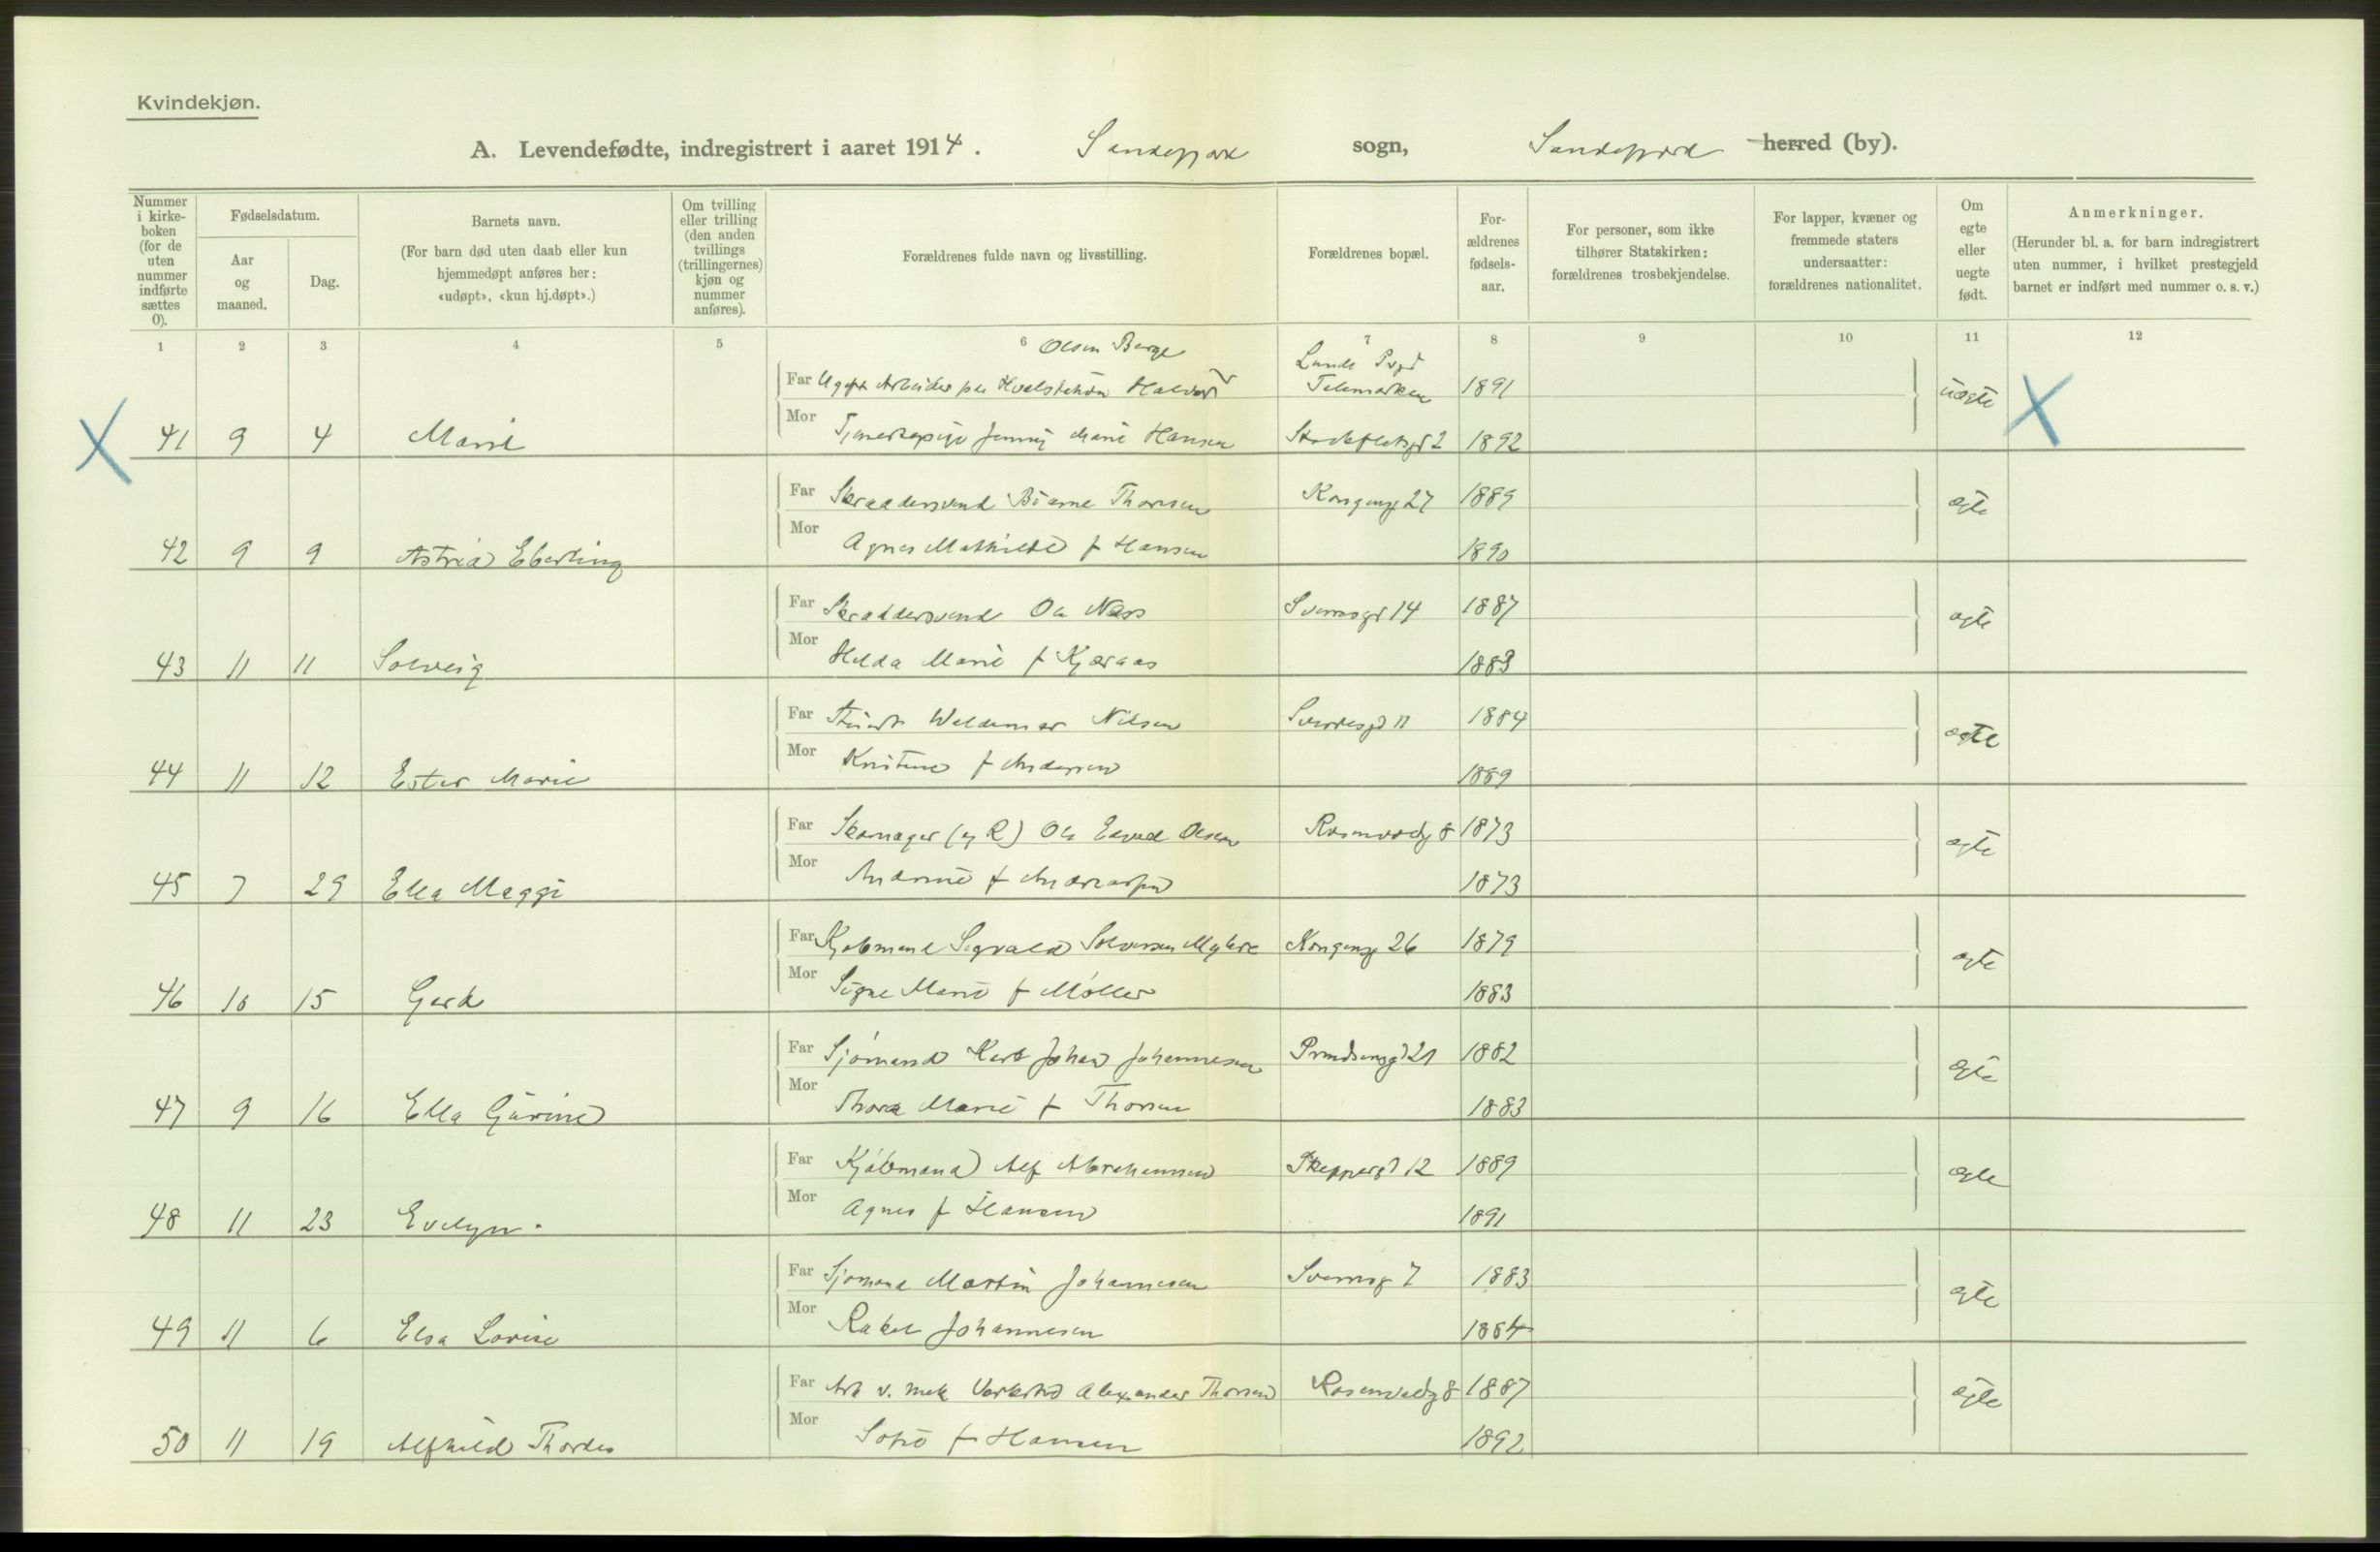 Kvindekjøn.
A. Levendefødte, indregistrert i aaret 1914. Sandefjord sogn, Sandefjord herred (by).
Nummer i kirke-boken (for de uten nummer indførte sættes 0).
Fødselsdatum.
Aar og maaned.
Dag.
Barnets navn.
(For barn død uten daab eller kun hjemmedøpt anføres her: «udøpt», «kun hj.døpt».)
Om tvilling eller trilling (den anden tvillings (trillingernes) kjøn og nummer anføres).
Forældrenes fulde navn og livsstilling.
Forældrenes bopæl.
For-ældrenes fødsels-aar.
For personer, som ikke tilhører Statskirken: forældrenes trosbekjendelse.
For lapper, kvæner og fremmede staters undersaatter: forældrenes nationalitet.
Om egte eller uegte født.
Anmerkninger.
(Herunder bl. a. for barn indregistrert uten nummer, i hvilket prestegjeld barnet er indført med nummer o. s. v.)
1 2 3 4 5 6 7 8 9 10 11 12
Olsen Berge Lunde
Far Ugift Arbeider paa Hvalstation Halvor Telemarken 1891 uægte
41 9 4 Marie Mor Tjenestepige Jenny Marie Hansen 2 1892
Far Skraddersvend Bjarne Thorsen Kongensg 27 1889 ægte
42 9 9 Astrid Eberling Mor Agnes Mathilde f Hansen 1890
Far Skraddersvend Ole Næss 14 1887 ægte
43 11 11 Solveig Mor Helda Marie f Kjæraas 1883
Far Waldemar Nilsen 11 1884 ægte
44 11 12 Ester Marie Mor Kristine f Andersen 1889
Far Skomager Ole Olsen 8 1873 ægte
45 7 29 Ella Maggi Mor f 1873
Far Kjøbmand Sigvald Mykre Kongensg 26 1879 ægte
46 10 15 Gerd Mor Signe Marie f Møller 1883
Far Sjømand Karl Johan Johannesen Prindsensgd 21 1882 ægte
47 9 16 Ella Gurine Mor Thora Marie f Thorsen 1883
Far Kjøbmand Alf Abrahamsen Skippergd 12 1889 ægte
48 11 23 Evelyn. Mor Agnes f Hansen 1891
Far Sjømand Martin Johannesen 7 1883 ægte
49 11 6 Elsa Lovise Mor Rakel Johannesen 1884
Far Arb v. mek Verksted Alexander Thorsen 8 1887 ægte
50 11 19 Alfhild Thordis Mor Sofie f Hansen 1892